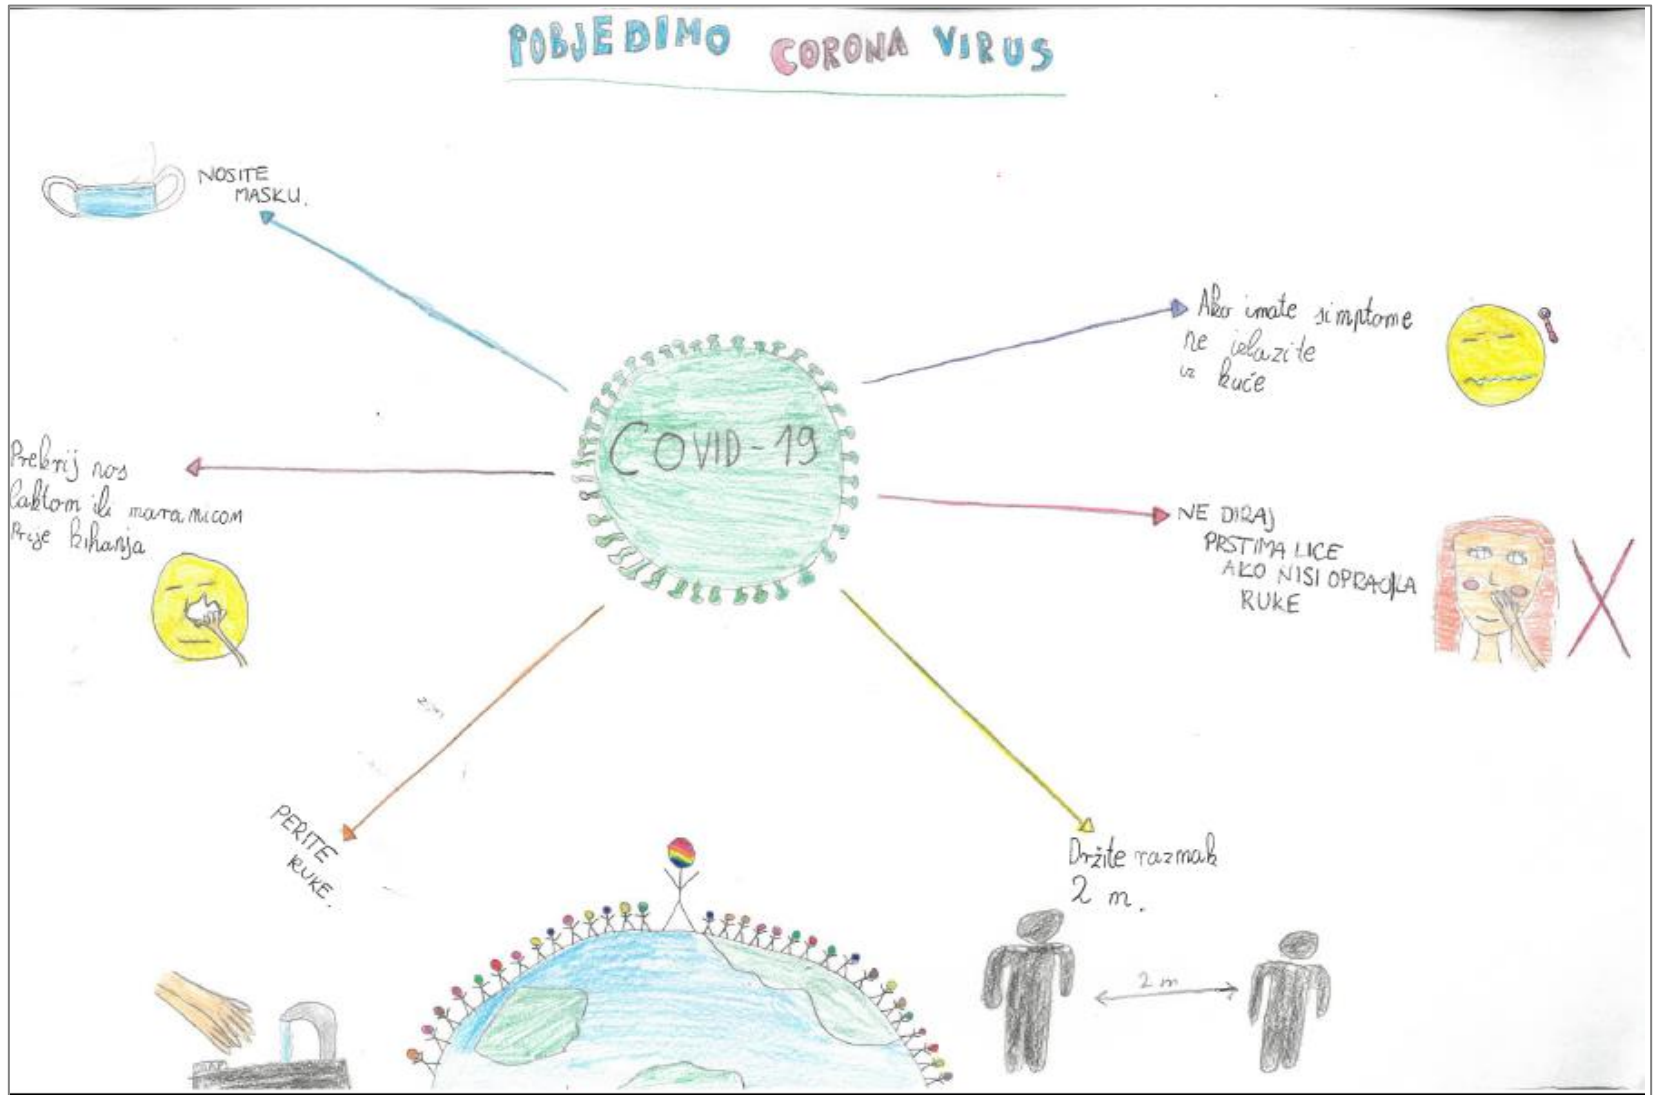 POBJEDIMO CORONA VIRUS
NOSITE
MASKU.
Ako imate simptome
ne izlazite
iz kuće
COVID-19
Prekrij nos
laktom ili maramicom
Prije kihanja
NE DIRAJ
PRSTIMA LICE
AKO NISI OPRAO/LA
RUKE
PERITE
RUKE.
Držite razmak
2 m.
2 m